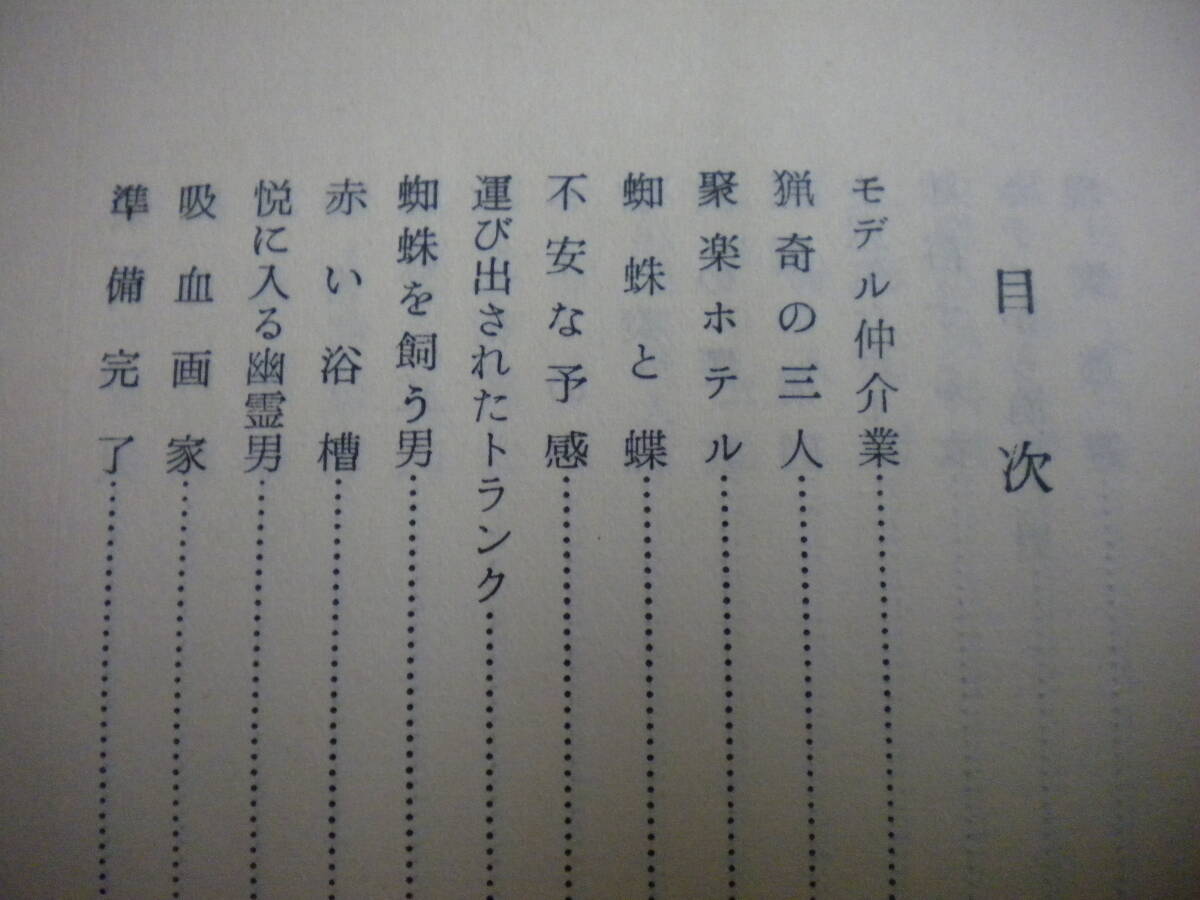 目次
モデル仲介業
猟奇の三人
聚楽ホテル
蜘蛛と蝶
不安な予感
運び出されたトランク
蜘蛛を飼う男
赤い浴槽
悦に入る幽霊男
吸血画家
準備完了